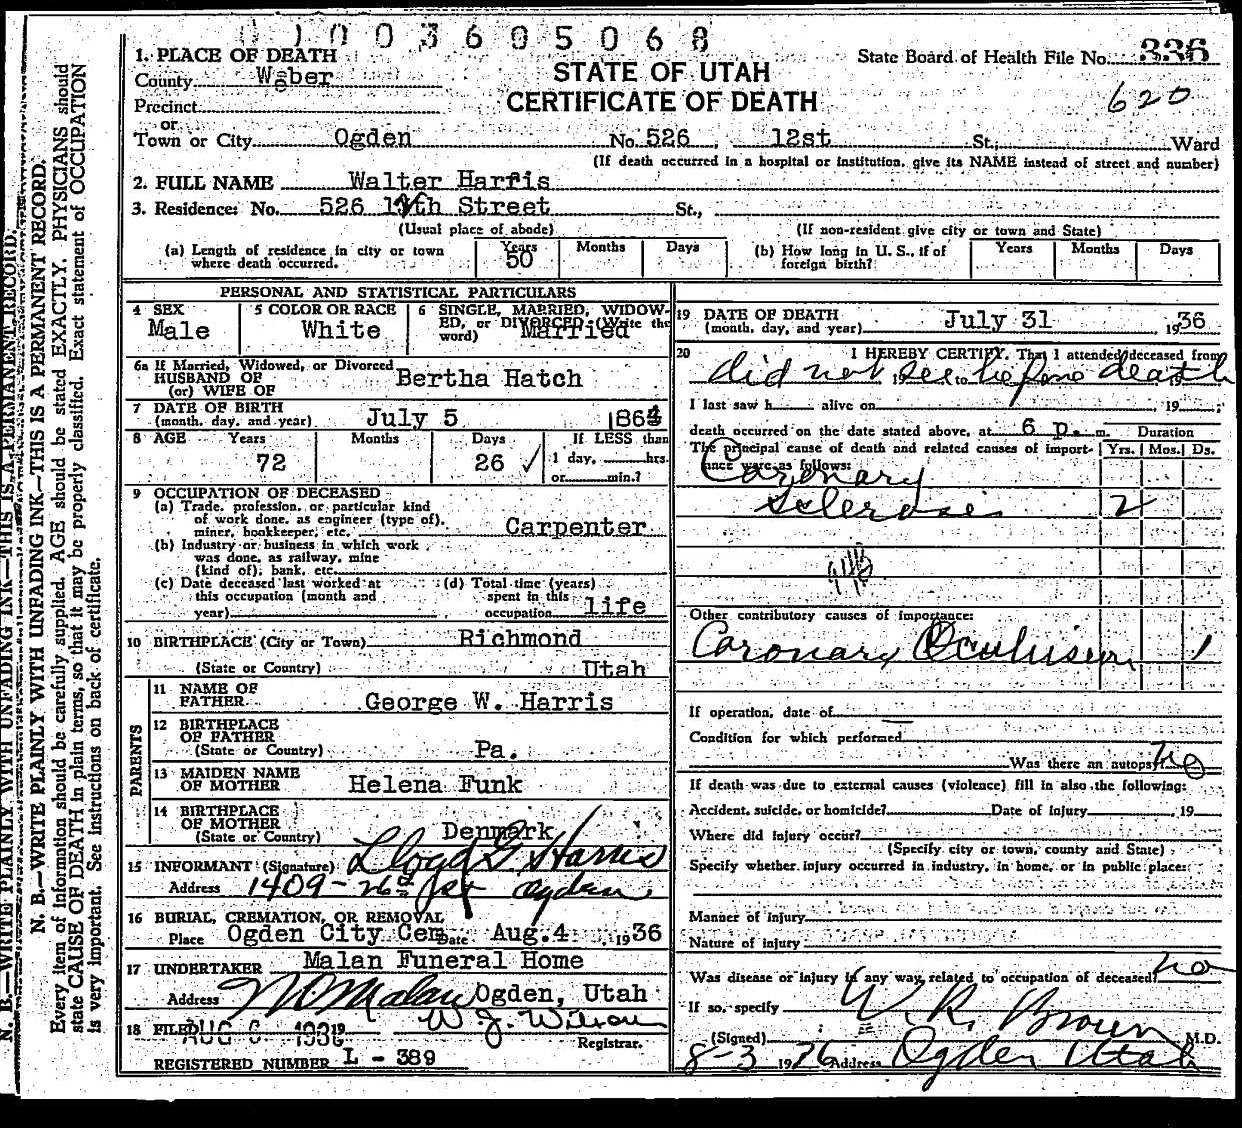 1003605068
State Board of Health File No. 336
620
STATE OF UTAH
CERTIFICATE OF DEATH
1. PLACE OF DEATH
County Weber
Precinct
or
Town or City Ogden No. 526 12st St.; Ward
(If death occurred in a hospital or institution, give its NAME instead of street and number)
2. FULL NAME Walter Harris
3. Residence: No. 526 12th Street St.,
(Usual place of abode) (If non-resident give city or town and State)
(a) Length of residence in city or town where death occurred. Years 50 Months Days
(b) How long in U. S., if of foreign birth? Years Months Days
PERSONAL AND STATISTICAL PARTICULARS
4 SEX Male
5 COLOR OR RACE White
6 SINGLE, MARRIED, WIDOWED, or DIVORCED (Write the word) Married
6a If Married, Widowed, or Divorced
HUSBAND OF
(or) WIFE OF Bertha Hatch
7 DATE OF BIRTH
(month, day, and year) July 5 1864
8 AGE Years 72 Months Days 26 ✓ If LESS than 1 day, hrs. or min.?
9 OCCUPATION OF DECEASED
(a) Trade, profession, or particular kind
of work done, as engineer (type of),
miner, bookkeeper, etc. Carpenter
(b) Industry or business in which work
was done, as railway, mine
(kind of), bank, etc.
(c) Date deceased last worked at this occupation (month and year)
(d) Total time (years) spent in this occupation life
10 BIRTHPLACE (City or Town) Richmond
(State or Country) Utah
PARENTS
11 NAME OF
FATHER George W. Harris
12 BIRTHPLACE
OF FATHER
(State or Country) Pa.
13 MAIDEN NAME
OF MOTHER Helena Funk
14 BIRTHPLACE
OF MOTHER
(State or Country) Denmark
15 INFORMANT (Signature) Lloyd G. Harris
Address 1409-26th St Ogden
16 BURIAL, CREMATION, OR REMOVAL
Place Ogden City Cem Date Aug. 4 1936
17 UNDERTAKER Malan Funeral Home
Address Malan Ogden, Utah
18 FILED AUG 6 1936 19 W. J. Wilson
Registrar.
REGISTERED NUMBER L - 389
19 DATE OF DEATH
(month, day, and year) July 31 1936
20 I HEREBY CERTIFY, That I attended deceased from
did not see before death
19 to 19
I last saw h alive on , 19 ;
death occurred on the date stated above, at 6 p. m.
Duration
The principal cause of death and related causes of importance were as follows: Yrs. Mos. Ds.
Coronary
Sclerosis 2
Other contributory causes of importance:
Coronary Occlusion 1
If operation, date of
Condition for which performed
Was there an autopsy? No
If death was due to external causes (violence) fill in also the following:
Accident, suicide, or homicide? Date of injury , 19
Where did injury occur?
(Specify city or town, county and State)
Specify whether injury occurred in industry, in home, or in public place:
Manner of injury
Nature of injury
Was disease or injury in any way related to occupation of deceased? no
If so, specify
(Signed) W. R. Brown M.D.
8-3 1936 Address Ogden Utah
N. B.—WRITE PLAINLY WITH UNFADING INK—THIS IS A PERMANENT RECORD.
N. B.—WRITE PLAINLY WITH UNFADING INK—THIS IS A PERMANENT RECORD.
Every item of information should be carefully supplied. AGE should be stated EXACTLY. PHYSICIANS should
state CAUSE OF DEATH in plain terms, so that it may be properly classified. Exact statement of OCCUPATION
is very important. See instructions on back of certificate.